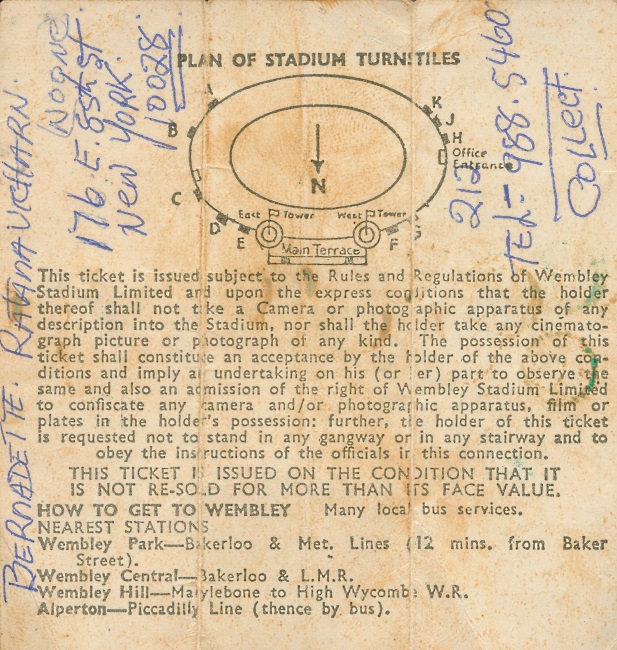 PLAN OF STADIUM TURNSTILES
A
B
C
D
E
F
G
H
J
K
Office
Entrance
N
East Tower
West Tower
Main Terrace
This ticket is issued subject to the Rules and Regulations of Wembley
Stadium Limited and upon the express conditions that the holder
thereof shall not take a Camera or photographic apparatus of any
description into the Stadium, nor shall the holder take any cinemato-
graph picture or photograph of any kind. The possession of this
ticket shall constitute an acceptance by the holder of the above con-
ditions and imply an undertaking on his (or her) part to observe the
same and also an admission of the right of Wembley Stadium Limited
to confiscate any camera and/or photographic apparatus, film or
plates in the holder's possession: further, the holder of this ticket
is requested not to stand in any gangway or in any stairway and to
obey the instructions of the officials in this connection.
THIS TICKET IS ISSUED ON THE CONDITION THAT IT
IS NOT RE-SOLD FOR MORE THAN ITS FACE VALUE.
HOW TO GET TO WEMBLEY Many local bus services.
NEAREST STATIONS
Wembley Park—Bakerloo & Met. Lines (12 mins. from Baker
Street).
Wembley Central—Bakerloo & L.M.R.
Wembley Hill—Marylebone to High Wycombe W.R.
Alperton—Piccadilly Line (thence by bus).
BERNADETTE.
176 E. 85th St.
NEW YORK.
10028
212
TEL- 988.5460
COLLECT.